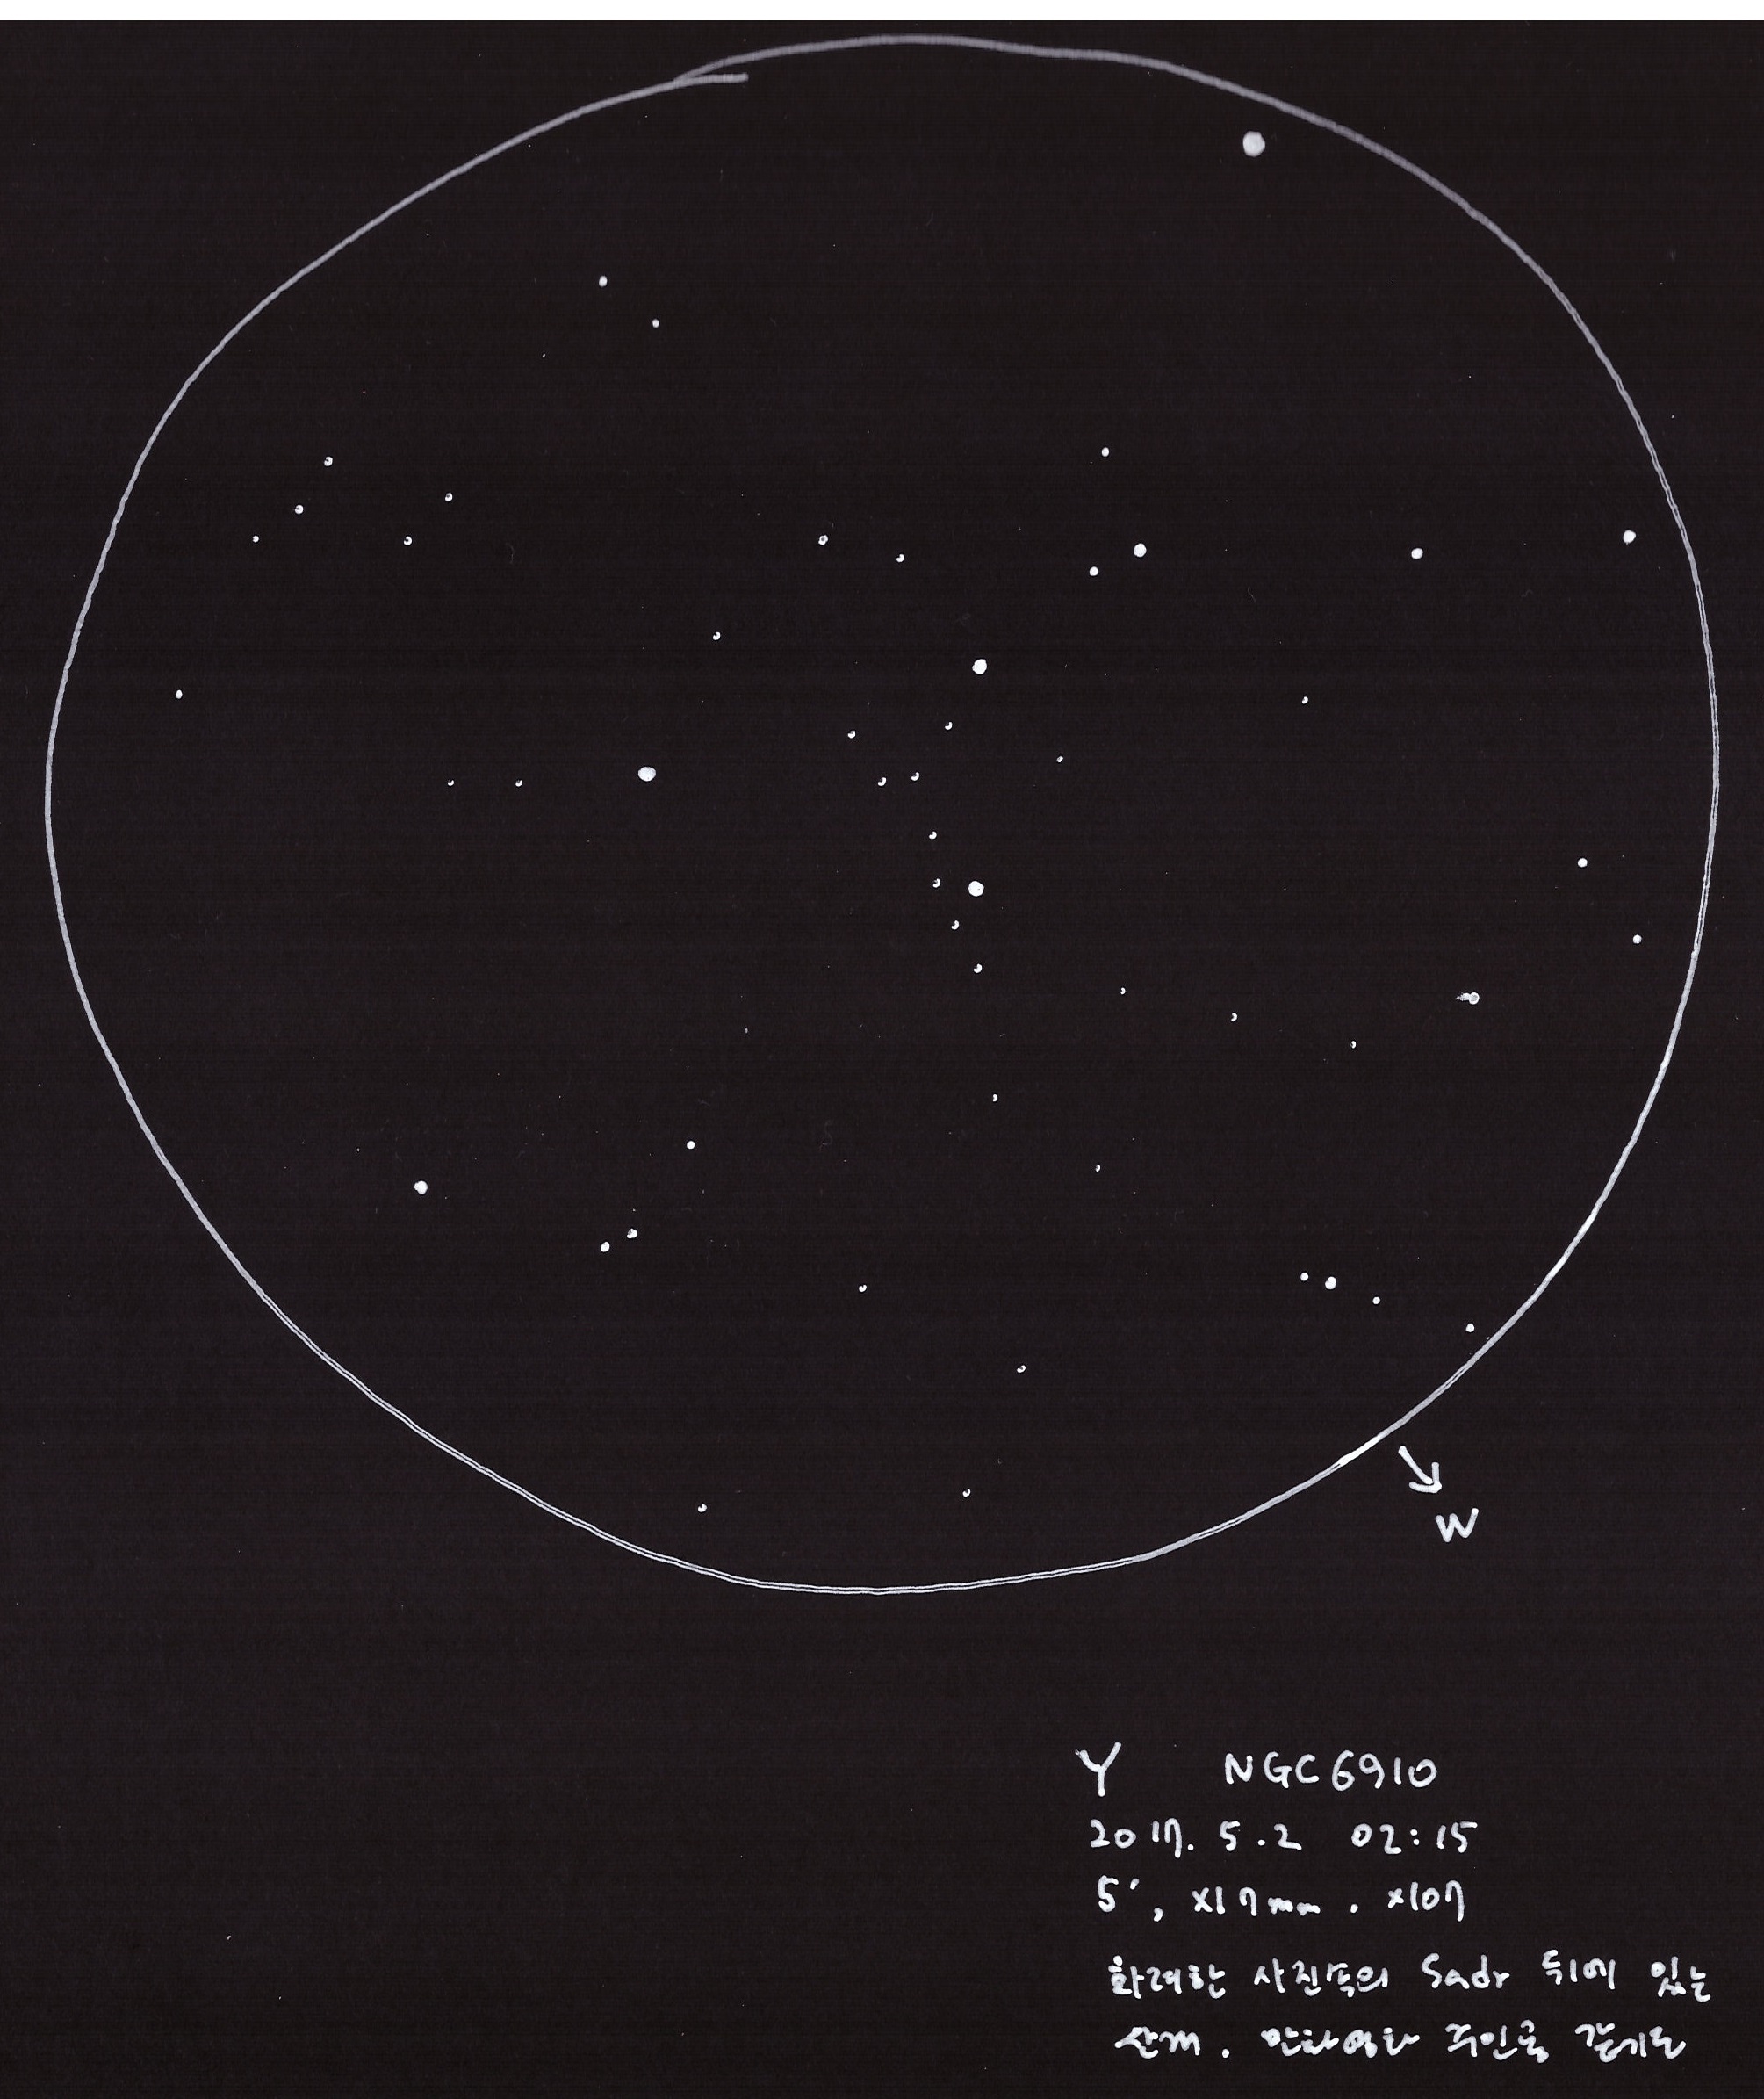 W
Y NGC6910
2017. 5.2 02:15
5′, x17mm. x107
화려한 사진속의 Sadr 뒤에 있는
산개. 만화영화 주인공 같기도